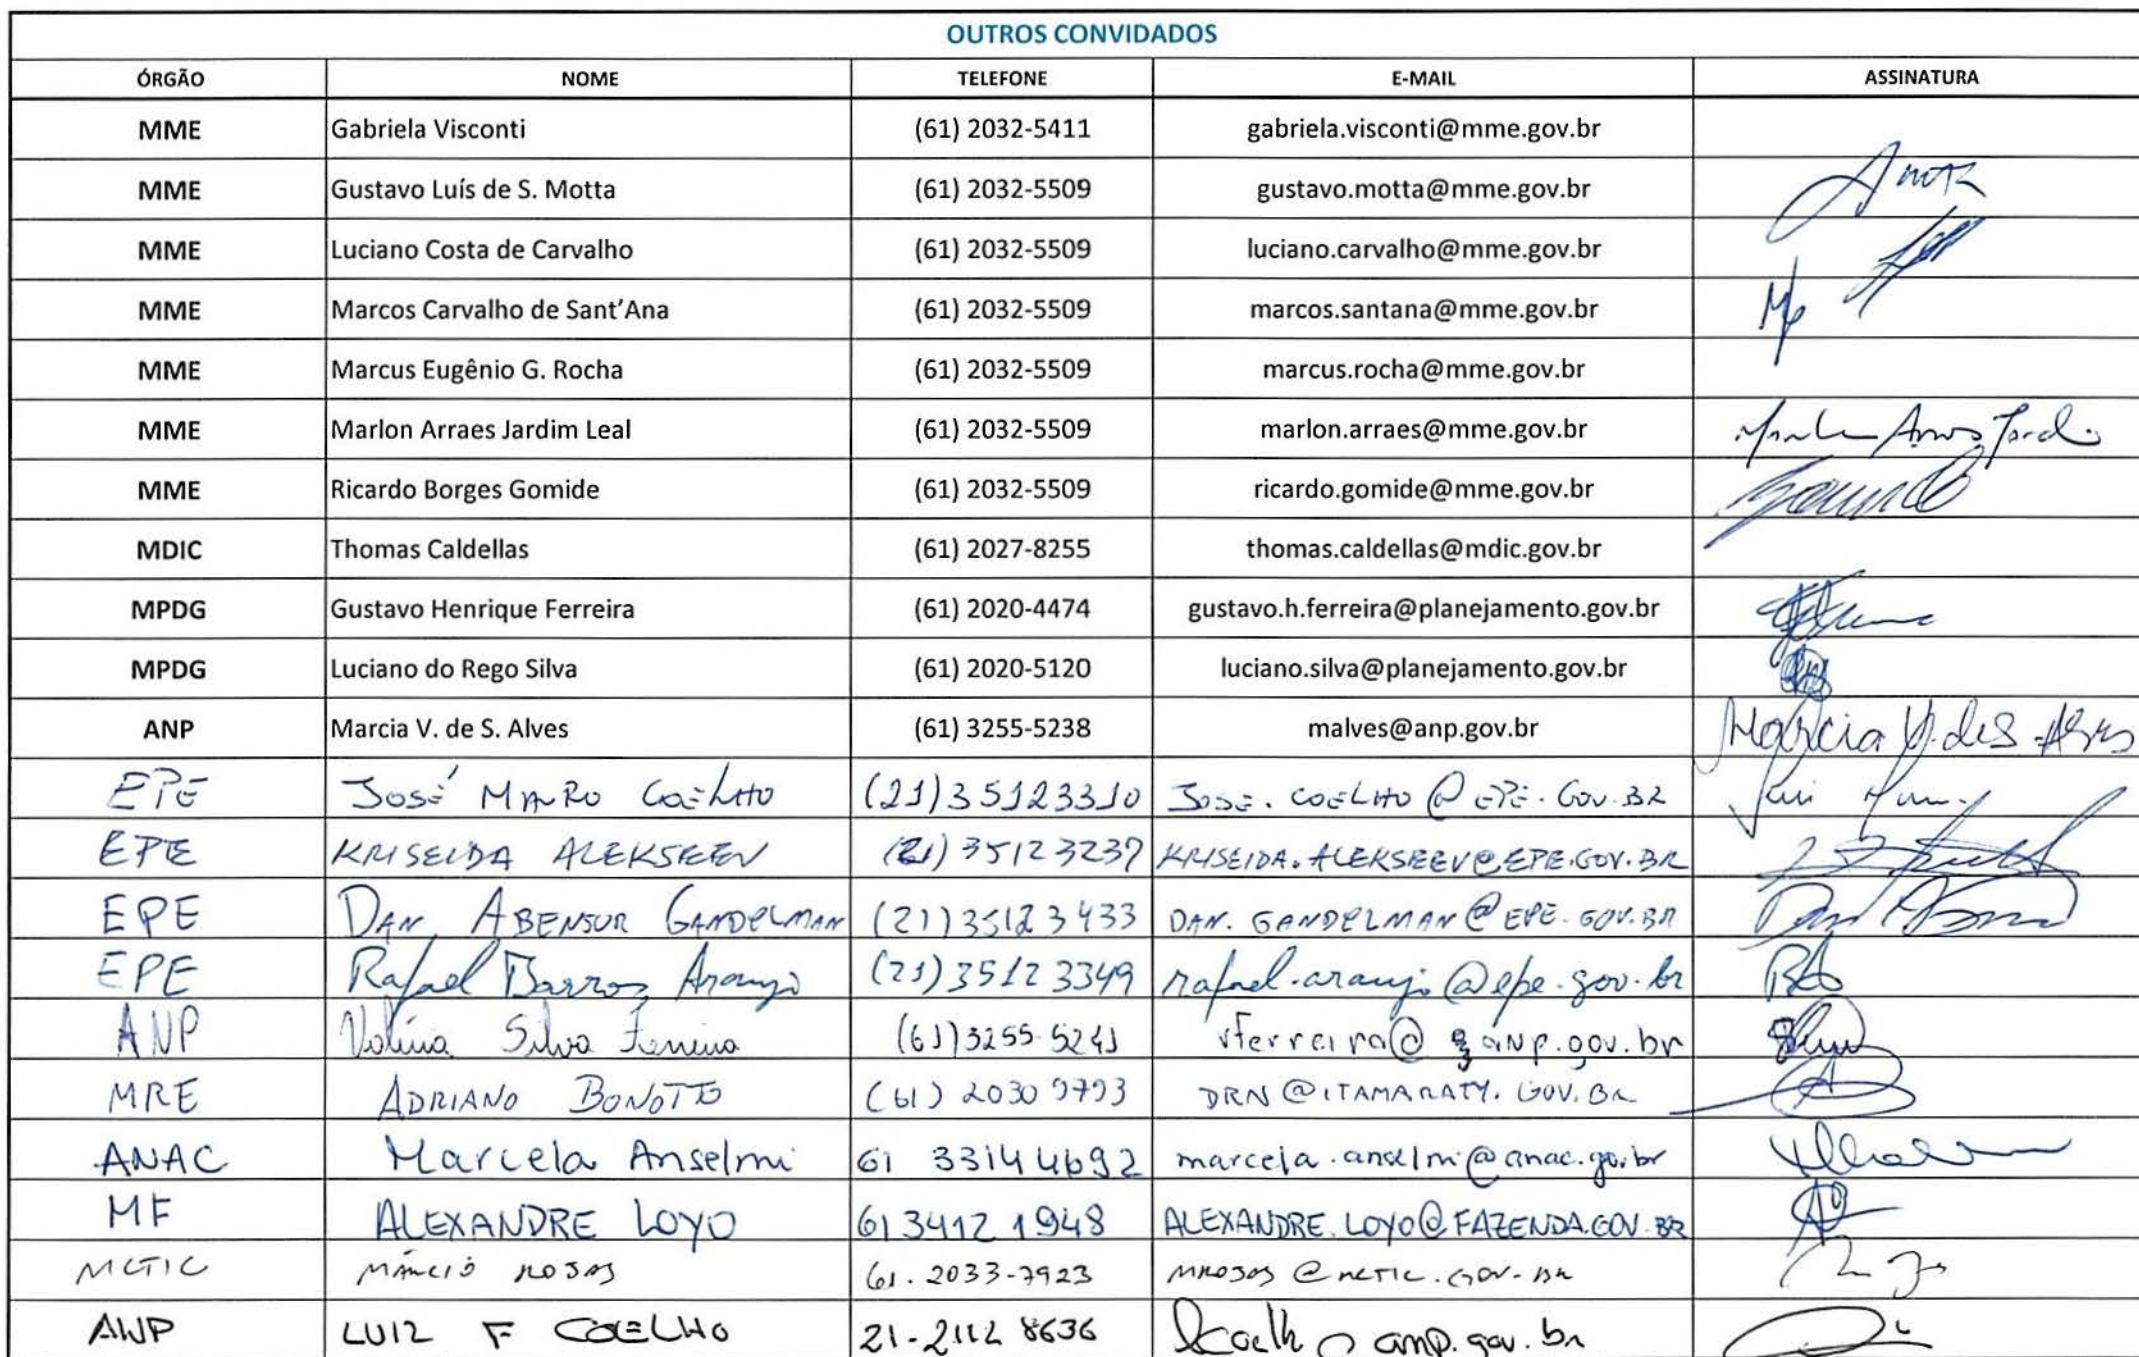 OUTROS CONVIDADOS
ÓRGÃO NOME TELEFONE E-MAIL ASSINATURA
MME Gabriela Visconti (61) 2032-5411 gabriela.visconti@mme.gov.br
MME Gustavo Luís de S. Motta (61) 2032-5509 gustavo.motta@mme.gov.br
MME Luciano Costa de Carvalho (61) 2032-5509 luciano.carvalho@mme.gov.br
MME Marcos Carvalho de Sant’Ana (61) 2032-5509 marcos.santana@mme.gov.br
MME Marcus Eugênio G. Rocha (61) 2032-5509 marcus.rocha@mme.gov.br
MME Marlon Arraes Jardim Leal (61) 2032-5509 marlon.arraes@mme.gov.br
MME Ricardo Borges Gomide (61) 2032-5509 ricardo.gomide@mme.gov.br
MDIC Thomas Caldellas (61) 2027-8255 thomas.caldellas@mdic.gov.br
MPDG Gustavo Henrique Ferreira (61) 2020-4474 gustavo.h.ferreira@planejamento.gov.br
MPDG Luciano do Rego Silva (61) 2020-5120 luciano.silva@planejamento.gov.br
ANP Marcia V. de S. Alves (61) 3255-5238 malves@anp.gov.br Marcia V. de S. Alves
EPE JOSÉ MAURO COELHO (21) 35123310 JOSE.COELHO@EPE.GOV.BR
EPE KRISEIDA ALEKSEEV (21) 35123237 KRISEIDA.ALEKSEEV@EPE.GOV.BR
EPE DAN ABENSUR GANDELMAN (21) 35123433 DAN.GANDELMAN@EPE.GOV.BR
EPE Rafael Barros Araujo (21) 35123349 rafael.araujo@epe.gov.br
ANP Valéria Silva Ferreira (61) 3255-5241 vferreira@anp.gov.br
MRE ADRIANO BONOTTO (61) 2030 9793 DRN@ITAMARATY.GOV.BR
ANAC Marcela Anselmi 61 33144692 marcela.anselmi@anac.gov.br
MF ALEXANDRE LOYO 61 3412 1948 ALEXANDRE.LOYO@FAZENDA.GOV.BR
MCTIC MÁRCIO ROJAS 61.2033-7923 MROJAS@MCTIC.GOV.BR
ANP LUIZ F COELHO 21-2112 8636 anp.gov.br